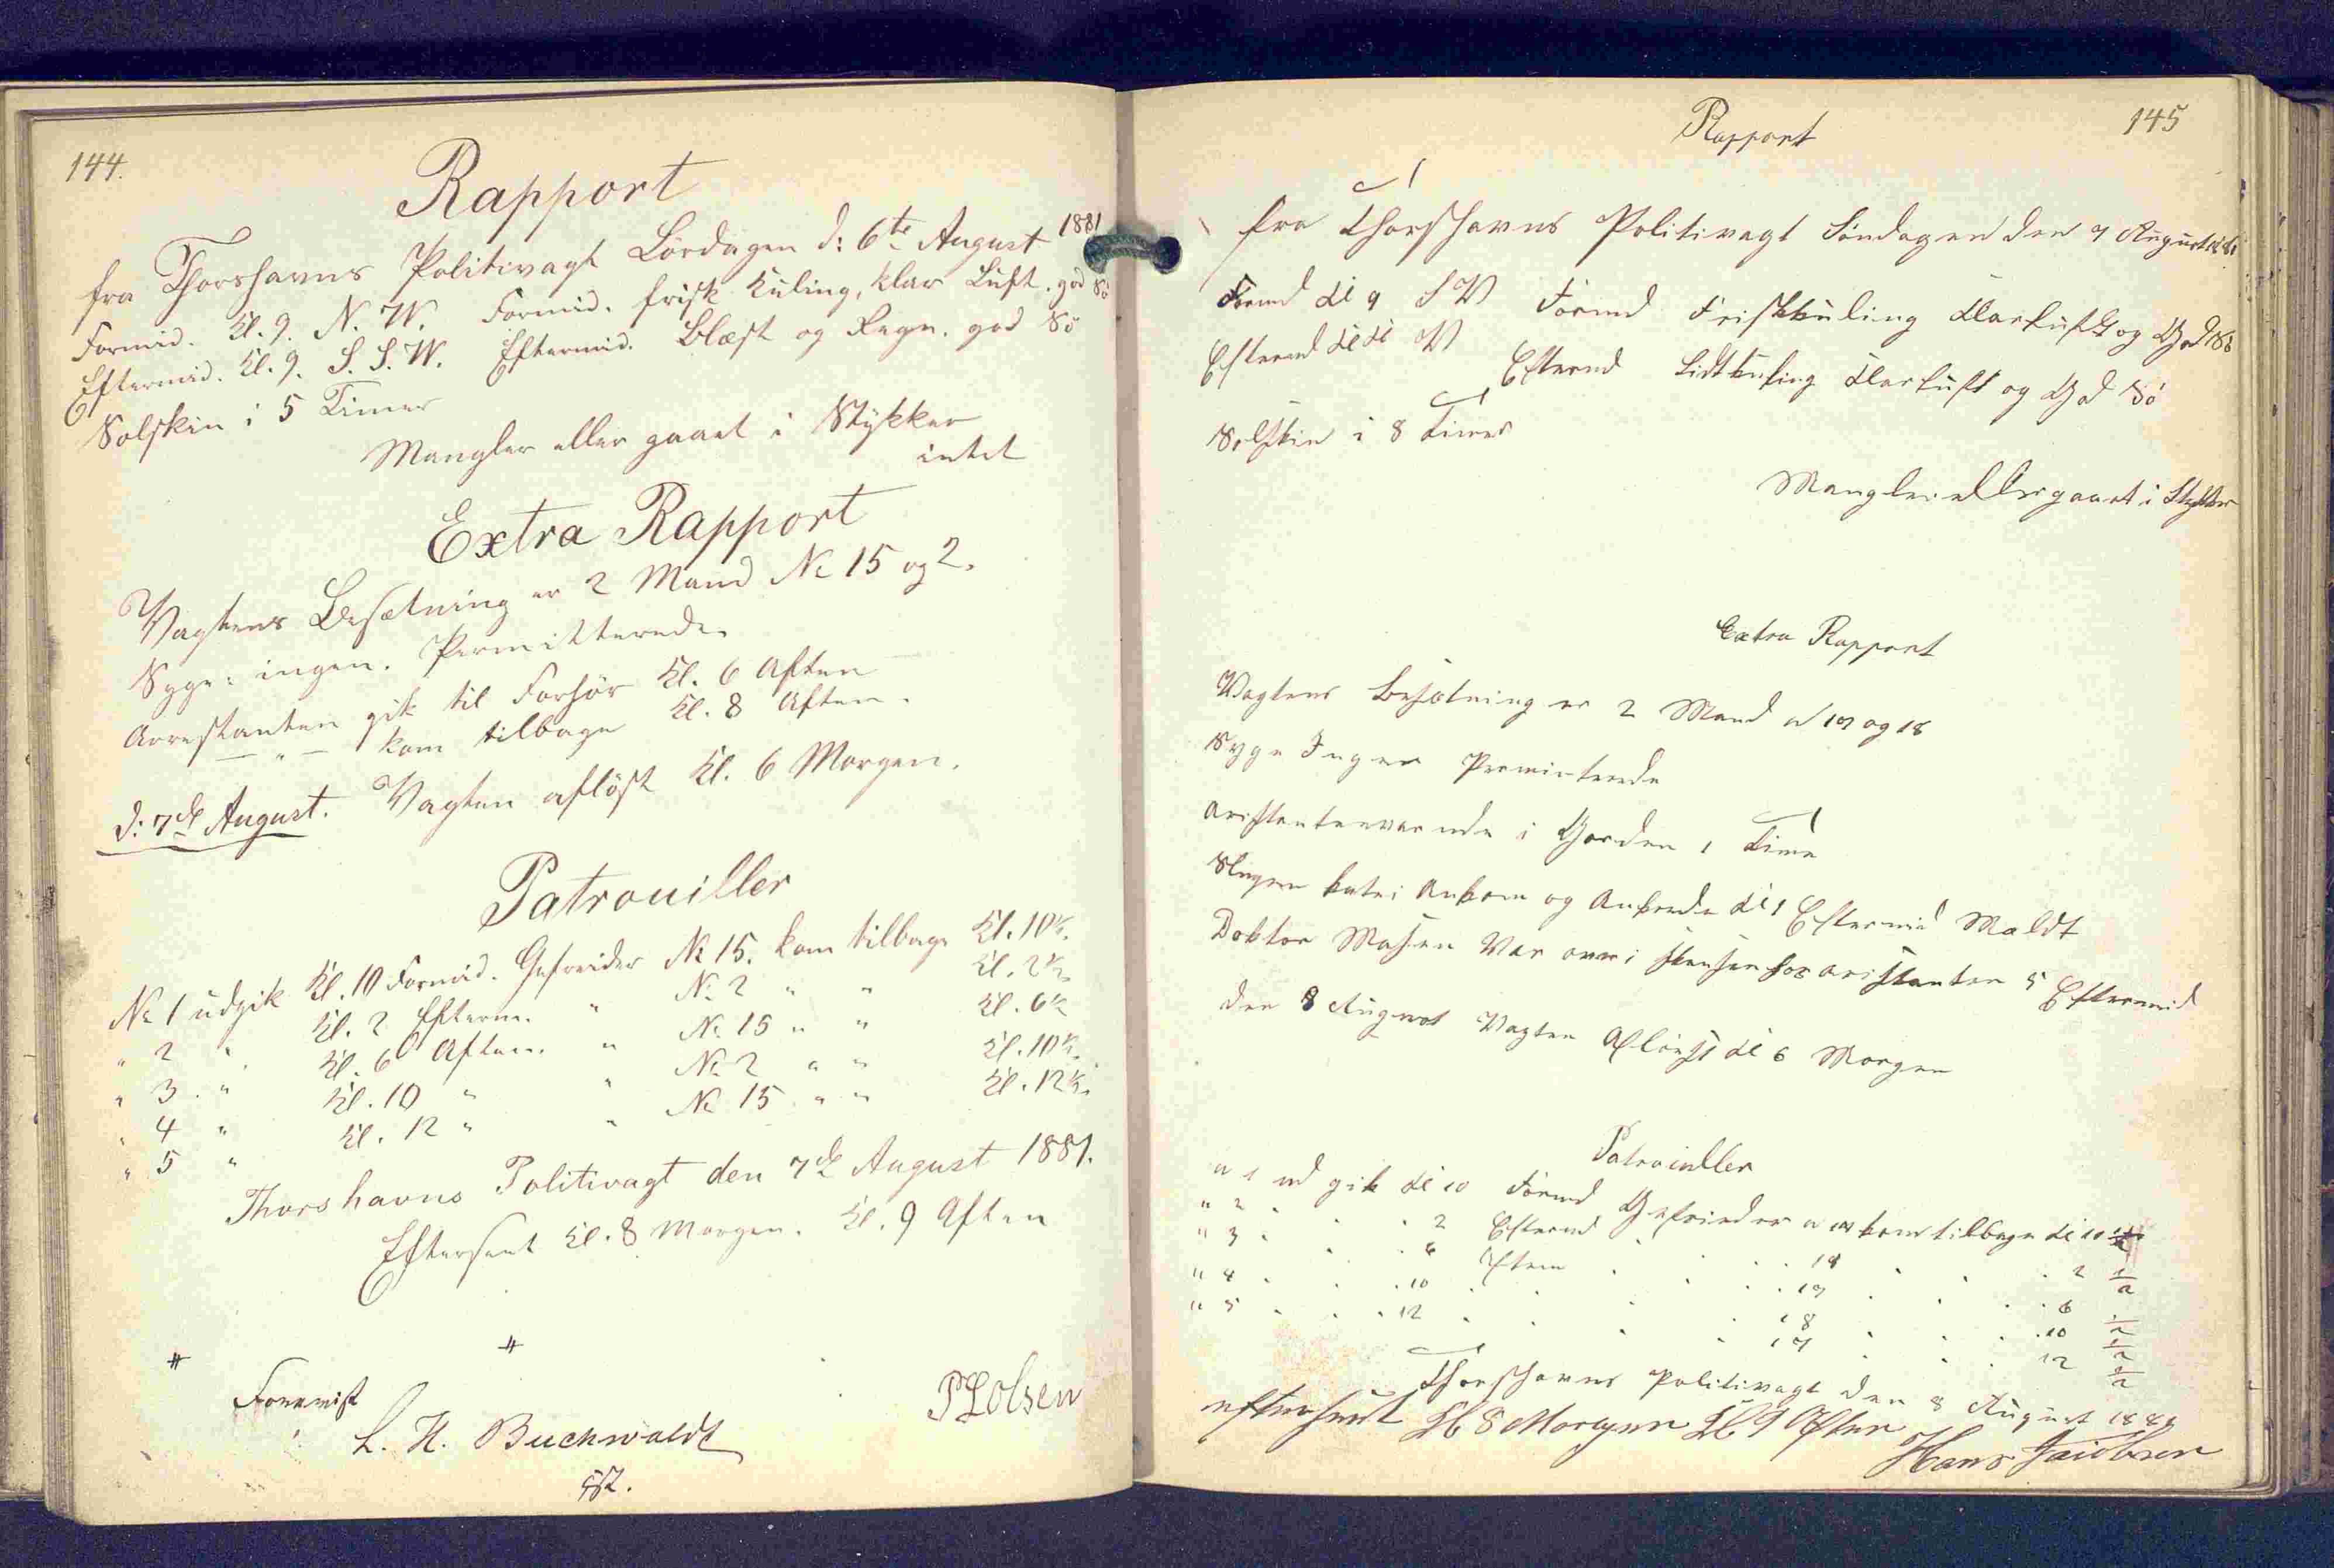 144.
Rapport
fra Thorshavns Politivagt Lördagen d: 6te August 1881
Formid. Kl. 9. N. W. Formid. frisk Kuling, klar Luft. god Sö
Eftermid. Kl. 9. S. S. W. Eftermid. Blæst og Regn. god Sö
Solskin i 5 Timer
Mangler eller gaaet i Stykker
intet
Extra Rapport
Vagtens Besætning er 2 Mand No 15 og 2.
Syge: ingen. Permitterede
Arrestanten gik til Forhör Kl. 6 Aften
— " — kom tilbage Kl. 8 Aften.
d: 7de August. Vagten aflöst Kl. 6 Morgen.
Patrouiller
No 1 udgik Kl. 10 Formid. Gefreider No 15. kom tilbage Kl. 10½.
" 2 " Kl. 2 Efterm. " No. 2 " " Kl. 2½
" 3. " Kl. 6 Aften. " No. 15 " " Kl. 6½
" 4 " Kl. 10 " " No. 2 " " Kl. 10½.
" 5 " Kl. 12 " " No 15 " " Kl. 12½.
Thorshavns Politivagt den 7de August 1881.
Efterseet Kl. 8 Morgen. Kl. 9 Aften
L. H. Buchwaldt
P L Olsen
145
Rapport
fra Thorshavns Politivagt Söndagen den 7 August
Formd Kl 9 S W Formd Friskkuling Klarluft og God Sö
Eftermd Kl V Eftermd Lidtkuling Klarluft og God Sö
Solskin i 8 Timer
Mangler eller gaaet i Stykker
Extra Rapport
Vagtens besætning er 2 Mand n 17 og 18
Syge Ingen Permiterede
Aristanten var ude i Gorden 1 Time
Ankom og Ankrede Kl 1 Eftermid Mældt
Doktor Var over i skansen hos aristanten 5 Eftermid
den 8 August Vagten Aflöst Kl 6 Morgen
Patrouiller
n 1 ud gik Kl 10 Formd Gefrieder n 17 kom tilbage Kl 10 ½
" 2 . . . 2 Eftermd . . . 18 . . . 2 ½
" 3 . . . 6 Aften . . . 17 . . . 6 ½
" 4 . . . 10 . . . 18 . . . 10 ½
" 5 . . . 12 . . . 17 . . . 12 ½
Thorshavns Politivagt den 8 August
efterseet Kl 8 Morgen Kl 9 Aften
Hans Jacobsen